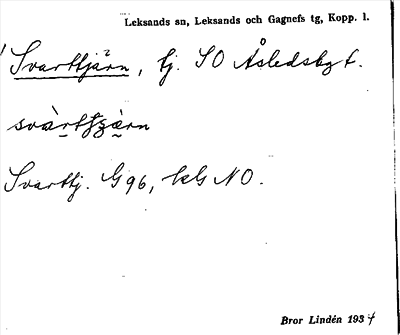 Leksands sn, Leksands och Gagnefs tg, Kopp. l.
Svarttjärn, tj. SO Åsledsbyt.
Svarttj. G 96, kbl NO.
Bror Lindén 1934